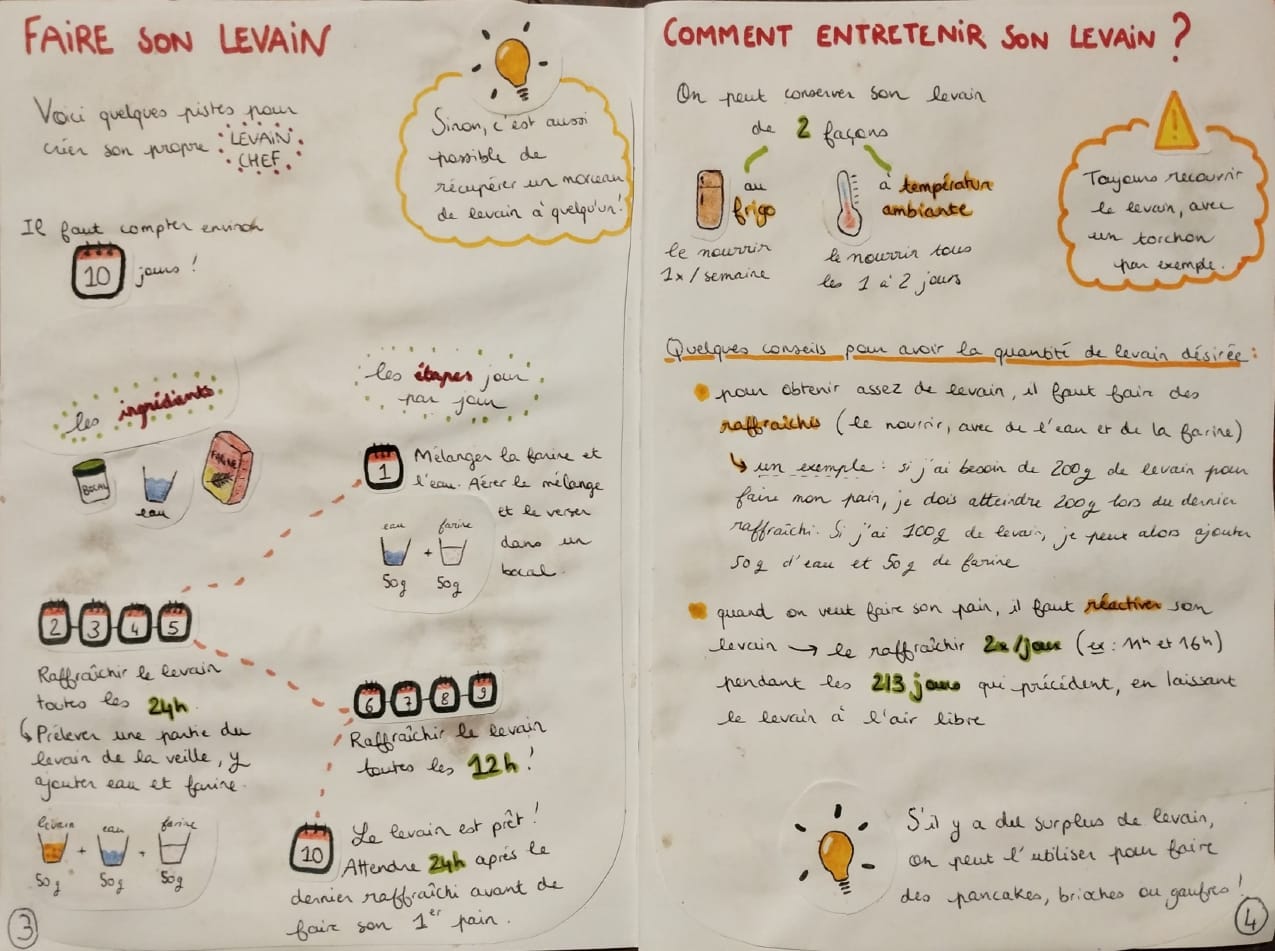 FAIRE SON LEVAIN
Voici quelques pistes pour
créer son propre LEVAIN
CHEF
Sinon, c'est aussi
possible de
récupérer un morceau
de levain à quelqu'un!
Il faut compter environ
10 jours !
les ingrédients
BOCAL
eau
FARINE
les étapes jour
par jour
1
Mélanger la farine et
l'eau. Aérer le mélange
et le verser
dans un
bocal.
eau + farine
50g 50g
2 3 4 5
Raffraîchir le levain
toutes les 24h.
Prélever une partie du
levain de la veille, y
ajouter eau et farine.
levain + eau + farine
50g 50g 50g
6 7 8 9
Raffraîchir le levain
toutes les 12h !
10
Le levain est prêt !
Attendre 24h après le
dernier raffraîchi avant de
faire son 1er pain.
3
COMMENT ENTRETENIR SON LEVAIN ?
On peut conserver son levain
de 2 façons
au
frigo
le nourrir
1x/semaine
à température
ambiante
le nourrir tous
les 1 à 2 jours
Toujours recouvrir
le levain, avec
un torchon
par exemple.
Quelques conseils pour avoir la quantité de levain désirée :
pour obtenir assez de levain, il faut faire des
raffraîchis (le nourrir, avec de l'eau et de la farine)
un exemple : si j'ai besoin de 200g de levain pour
faire mon pain, je dois atteindre 200g lors du dernier
raffraîchi. Si j'ai 100g de levain, je peux alors ajouter
50g d'eau et 50g de farine
quand on veut faire son pain, il faut réactiver son
levain → le raffraîchir 2x/jour (ex : 11h et 16h)
pendant les 2/3 jours qui précédent, en laissant
le levain à l'air libre
S'il y a du surplus de levain,
on peut l'utiliser pour faire
des pancakes, brioches ou gaufres !
4